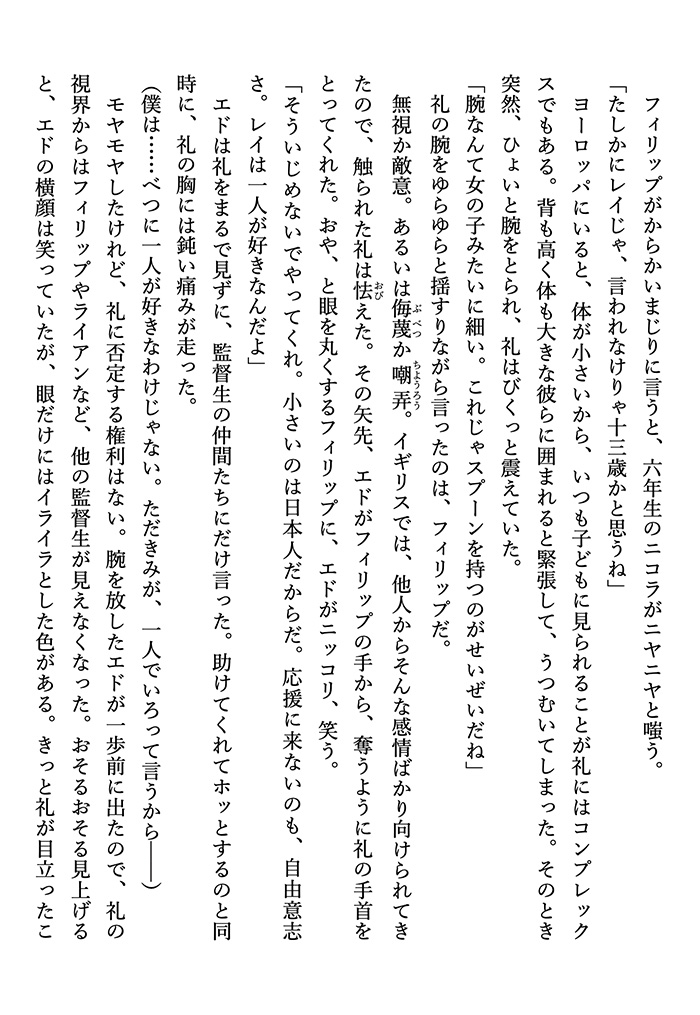 フィリップがからかいまじりに言うと、六年生のニコラがニヤニヤと嗤う。
「たしかにレイじゃ、言われなけりゃ十三歳かと思うね」
ヨーロッパにいると、体が小さいから、いつも子どもに見られることが礼にはコンプレック
スでもある。背も高く体も大きな彼らに囲まれると緊張して、うつむいてしまった。そのとき
突然、ひょいと腕をとられ、礼はびくっと震えていた。
「腕なんて女の子みたいに細い。これじゃスプーンを持つのがせいぜいだね」
礼の腕をゆらゆらと揺すりながら言ったのは、フィリップだ。
無視か敵意。あるいは侮蔑か嘲弄。イギリスでは、他人からそんな感情ばかり向けられてき
たので、触られた礼は怯えた。その矢先、エドがフィリップの手から、奪うように礼の手首を
とってくれた。おや、と眼を丸くするフィリップに、エドがニッコリ、笑う。
「そういじめないでやってくれ。小さいのは日本人だからだ。応援に来ないのも、自由意志
さ。レイは一人が好きなんだよ」
エドは礼をまるで見ずに、監督生の仲間たちにだけ言った。助けてくれてホッとするのと同
時に、礼の胸には鈍い痛みが走った。
(僕は……べつに一人が好きなわけじゃない。ただきみが、一人でいろって言うから――)
モヤモヤしたけれど、礼に否定する権利はない。腕を放したエドが一歩前に出たので、礼の
視界からはフィリップやライアンなど、他の監督生が見えなくなった。おそるおそる見上げる
と、エドの横顔は笑っていたが、眼だけにはイライラとした色がある。きっと礼が目立ったこ